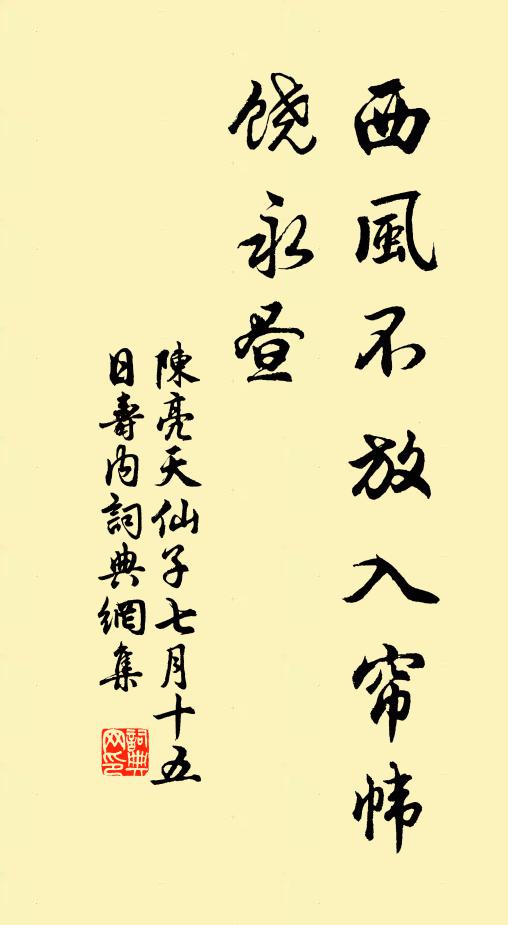 西風不放入帘幃
饒永晝
陳亮天仙子七月十五
日壽內詞典網集
詞典
网印